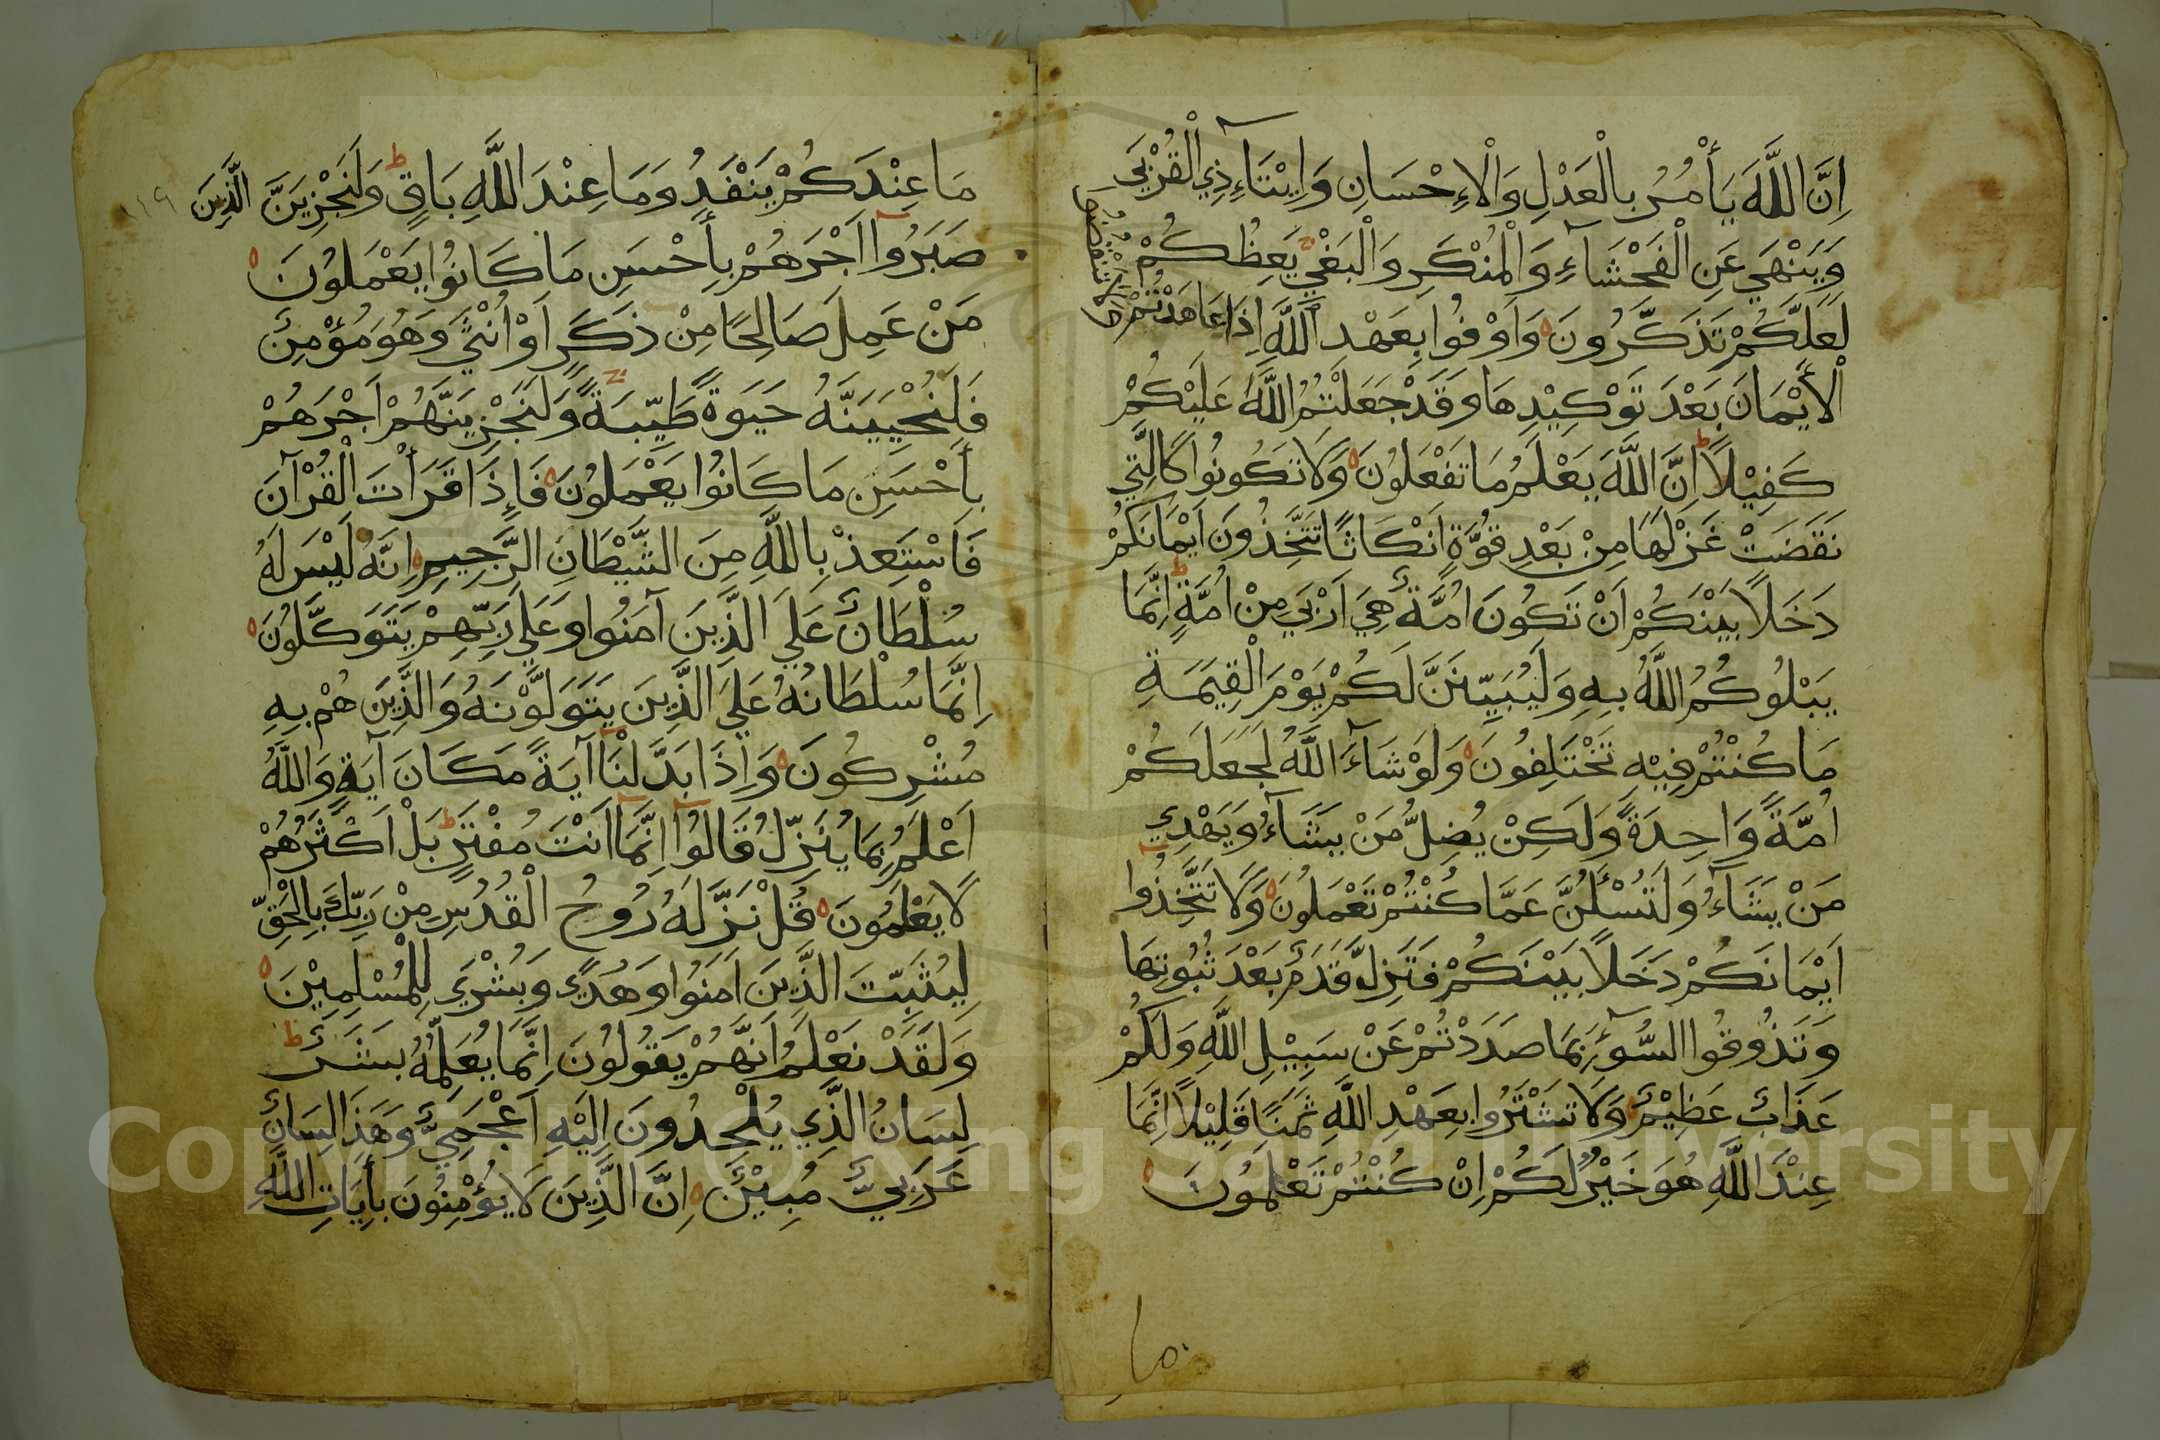 اِنَّ اللَّهَ يَأْمُرُ بِالْعَدْلِ وَالْاِحْسَانِ وَاِيْتَآءِ ذِي الْقُرْبَى
وَيَنْهَى عَنِ الْفَحْشَآءِ وَالْمُنْكَرِ وَالْبَغْيِ يَعِظُكُمْ
لَعَلَّكُمْ تَذَكَّرُونَ وَاَوْفُوا بِعَهْدِ اللَّهِ اِذَا عَاهَدْتُمْ
الْأَيْمَانَ بَعْدَ تَوْكِيْدِهَا وَقَدْ جَعَلْتُمُ اللَّهَ عَلَيْكُمْ
كَفِيْلًا اِنَّ اللَّهَ يَعْلَمُ مَا تَفْعَلُونَ وَلَا تَكُونُوا كَالَّتِي
نَقَضَتْ غَزْلَهَا مِنْ بَعْدِ قُوَّةٍ اَنْكَاثًا تَتَّخِذُونَ اَيْمَانَكُمْ
دَخَلًا بَيْنَكُمْ اَنْ تَكُونَ اُمَّةٌ هِيَ اَرْبَى مِنْ اُمَّةٍ اِنَّمَا
يَبْلُوكُمُ اللَّهُ بِهِ وَلَيُبَيِّنَنَّ لَكُمْ يَوْمَ الْقِيَمَةِ
مَا كُنْتُمْ فِيْهِ تَخْتَلِفُونَ وَلَوْ شَآءَ اللَّهُ لَجَعَلَكُمْ
اُمَّةً وَاحِدَةً وَلَكِنْ يُضِلُّ مَنْ يَشَآءُ وَيَهْدِي
مَنْ يَشَآءُ وَلَتُسْئَلُنَّ عَمَّا كُنْتُمْ تَعْمَلُونَ وَلَا تَتَّخِذُوا
اَيْمَانَكُمْ دَخَلًا بَيْنَكُمْ فَتَزِلَّ قَدَمٌ بَعْدَ ثُبُوتِهَا
وَتَذُوقُوا السُّوٓءَ بِمَا صَدَدْتُمْ عَنْ سَبِيْلِ اللَّهِ وَلَكُمْ
عَذَابٌ عَظِيْمٌ وَلَا تَشْتَرُوا بِعَهْدِ اللَّهِ ثَمَنًا قَلِيْلًا اِنَّمَا
عِنْدَ اللَّهِ هُوَ خَيْرٌ لَكُمْ اِنْ كُنْتُمْ تَعْلَمُونَ
ما
مَا عِنْدَكُمْ يَنْفَدُ وَمَا عِنْدَ اللَّهِ بَاقٍ وَلَنَجْزِيَنَّ الَّذِينَ
صَبَرُوآ اَجْرَهُمْ بِأَحْسَنِ مَا كَانُوا يَعْمَلُونَ
مَنْ عَمِلَ صَالِحًا مِنْ ذَكَرٍ اَوْ اُنْثَى وَهُوَ مُؤْمِنٌ
فَلَنُحْيِيَنَّهُ حَيَوةً طَيِّبَةً وَلَنَجْزِيَنَّهُمْ اَجْرَهُمْ
بِأَحْسَنِ مَا كَانُوا يَعْمَلُونَ فَإِذَا قَرَأْتَ الْقُرْآنَ
فَاسْتَعِذْ بِاللَّهِ مِنَ الشَّيْطَانِ الرَّجِيمِ اِنَّهُ لَيْسَ لَهُ
سُلْطَانٌ عَلَى الَّذِينَ آمَنُوا وَعَلَى رَبِّهِمْ يَتَوَكَّلُونَ
اِنَّمَا سُلْطَانُهُ عَلَى الَّذِينَ يَتَوَلَّوْنَهُ وَالَّذِينَ هُمْ بِهِ
مُشْرِكُونَ وَاِذَا بَدَّلْنَا آيَةً مَكَانَ آيَةٍ وَاللَّهُ
اَعْلَمُ بِمَا يُنَزِّلُ قَالُوآ اِنَّمَا اَنْتَ مُفْتَرٍ بَلْ اَكْثَرُهُمْ
لَا يَعْلَمُونَ قُلْ نَزَّلَهُ رُوحُ الْقُدُسِ مِنْ رَبِّكَ بِالْحَقِّ
لِيُثَبِّتَ الَّذِينَ اٰمَنُوا وَهُدًى وَبُشْرَى لِلْمُسْلِمِيْنَ
وَلَقَدْ نَعْلَمُ اَنَّهُمْ يَقُولُونَ اِنَّمَا يُعَلِّمُهُ بَشَرٌ
لِسَانُ الَّذِي يُلْحِدُونَ اِلَيْهِ اَعْجَمِيٌّ وَهَذَا لِسَانٌ
عَرَبِيٌّ مُبِيْنٌ اِنَّ الَّذِينَ لَا يُؤْمِنُونَ بِأَيَاتِ اللَّهِ
١٤٩
Copyright © King Saud University